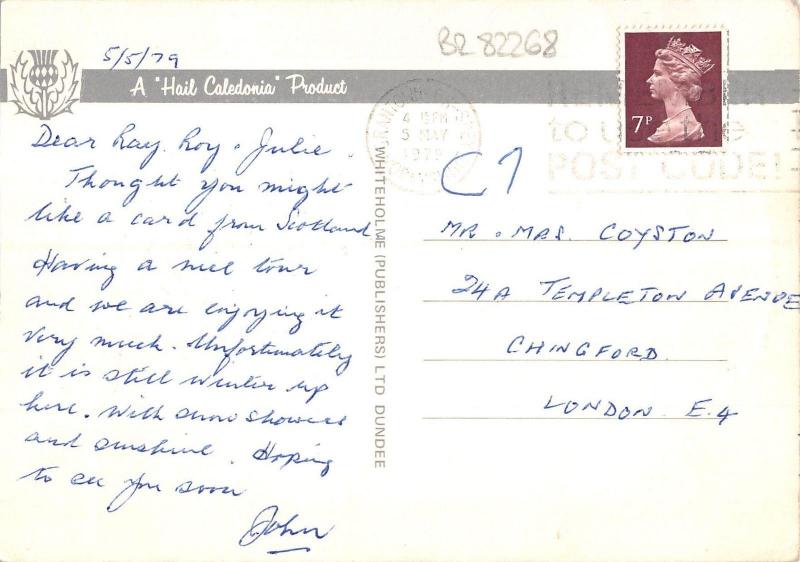 5/5/79
BR 82268
A "Hail Caledonia" Product
Dear Ray. Roy. Julie.
Thought you might
like a card from Scotland
Having a nice tour
and we are enjoying it
very much. Unfortunately
it is still winter up
here. With snow showers
and sunshine. Hoping
to see you soon
John
WHITEHOLME (PUBLISHERS) LTD DUNDEE
4 15 PM
5 MAY
1979
to use the
POST CODE!
7P
C7
MR. MRS. COYSTON
24A TEMPLETON AVENUE
CHINGFORD
LONDON. E.4